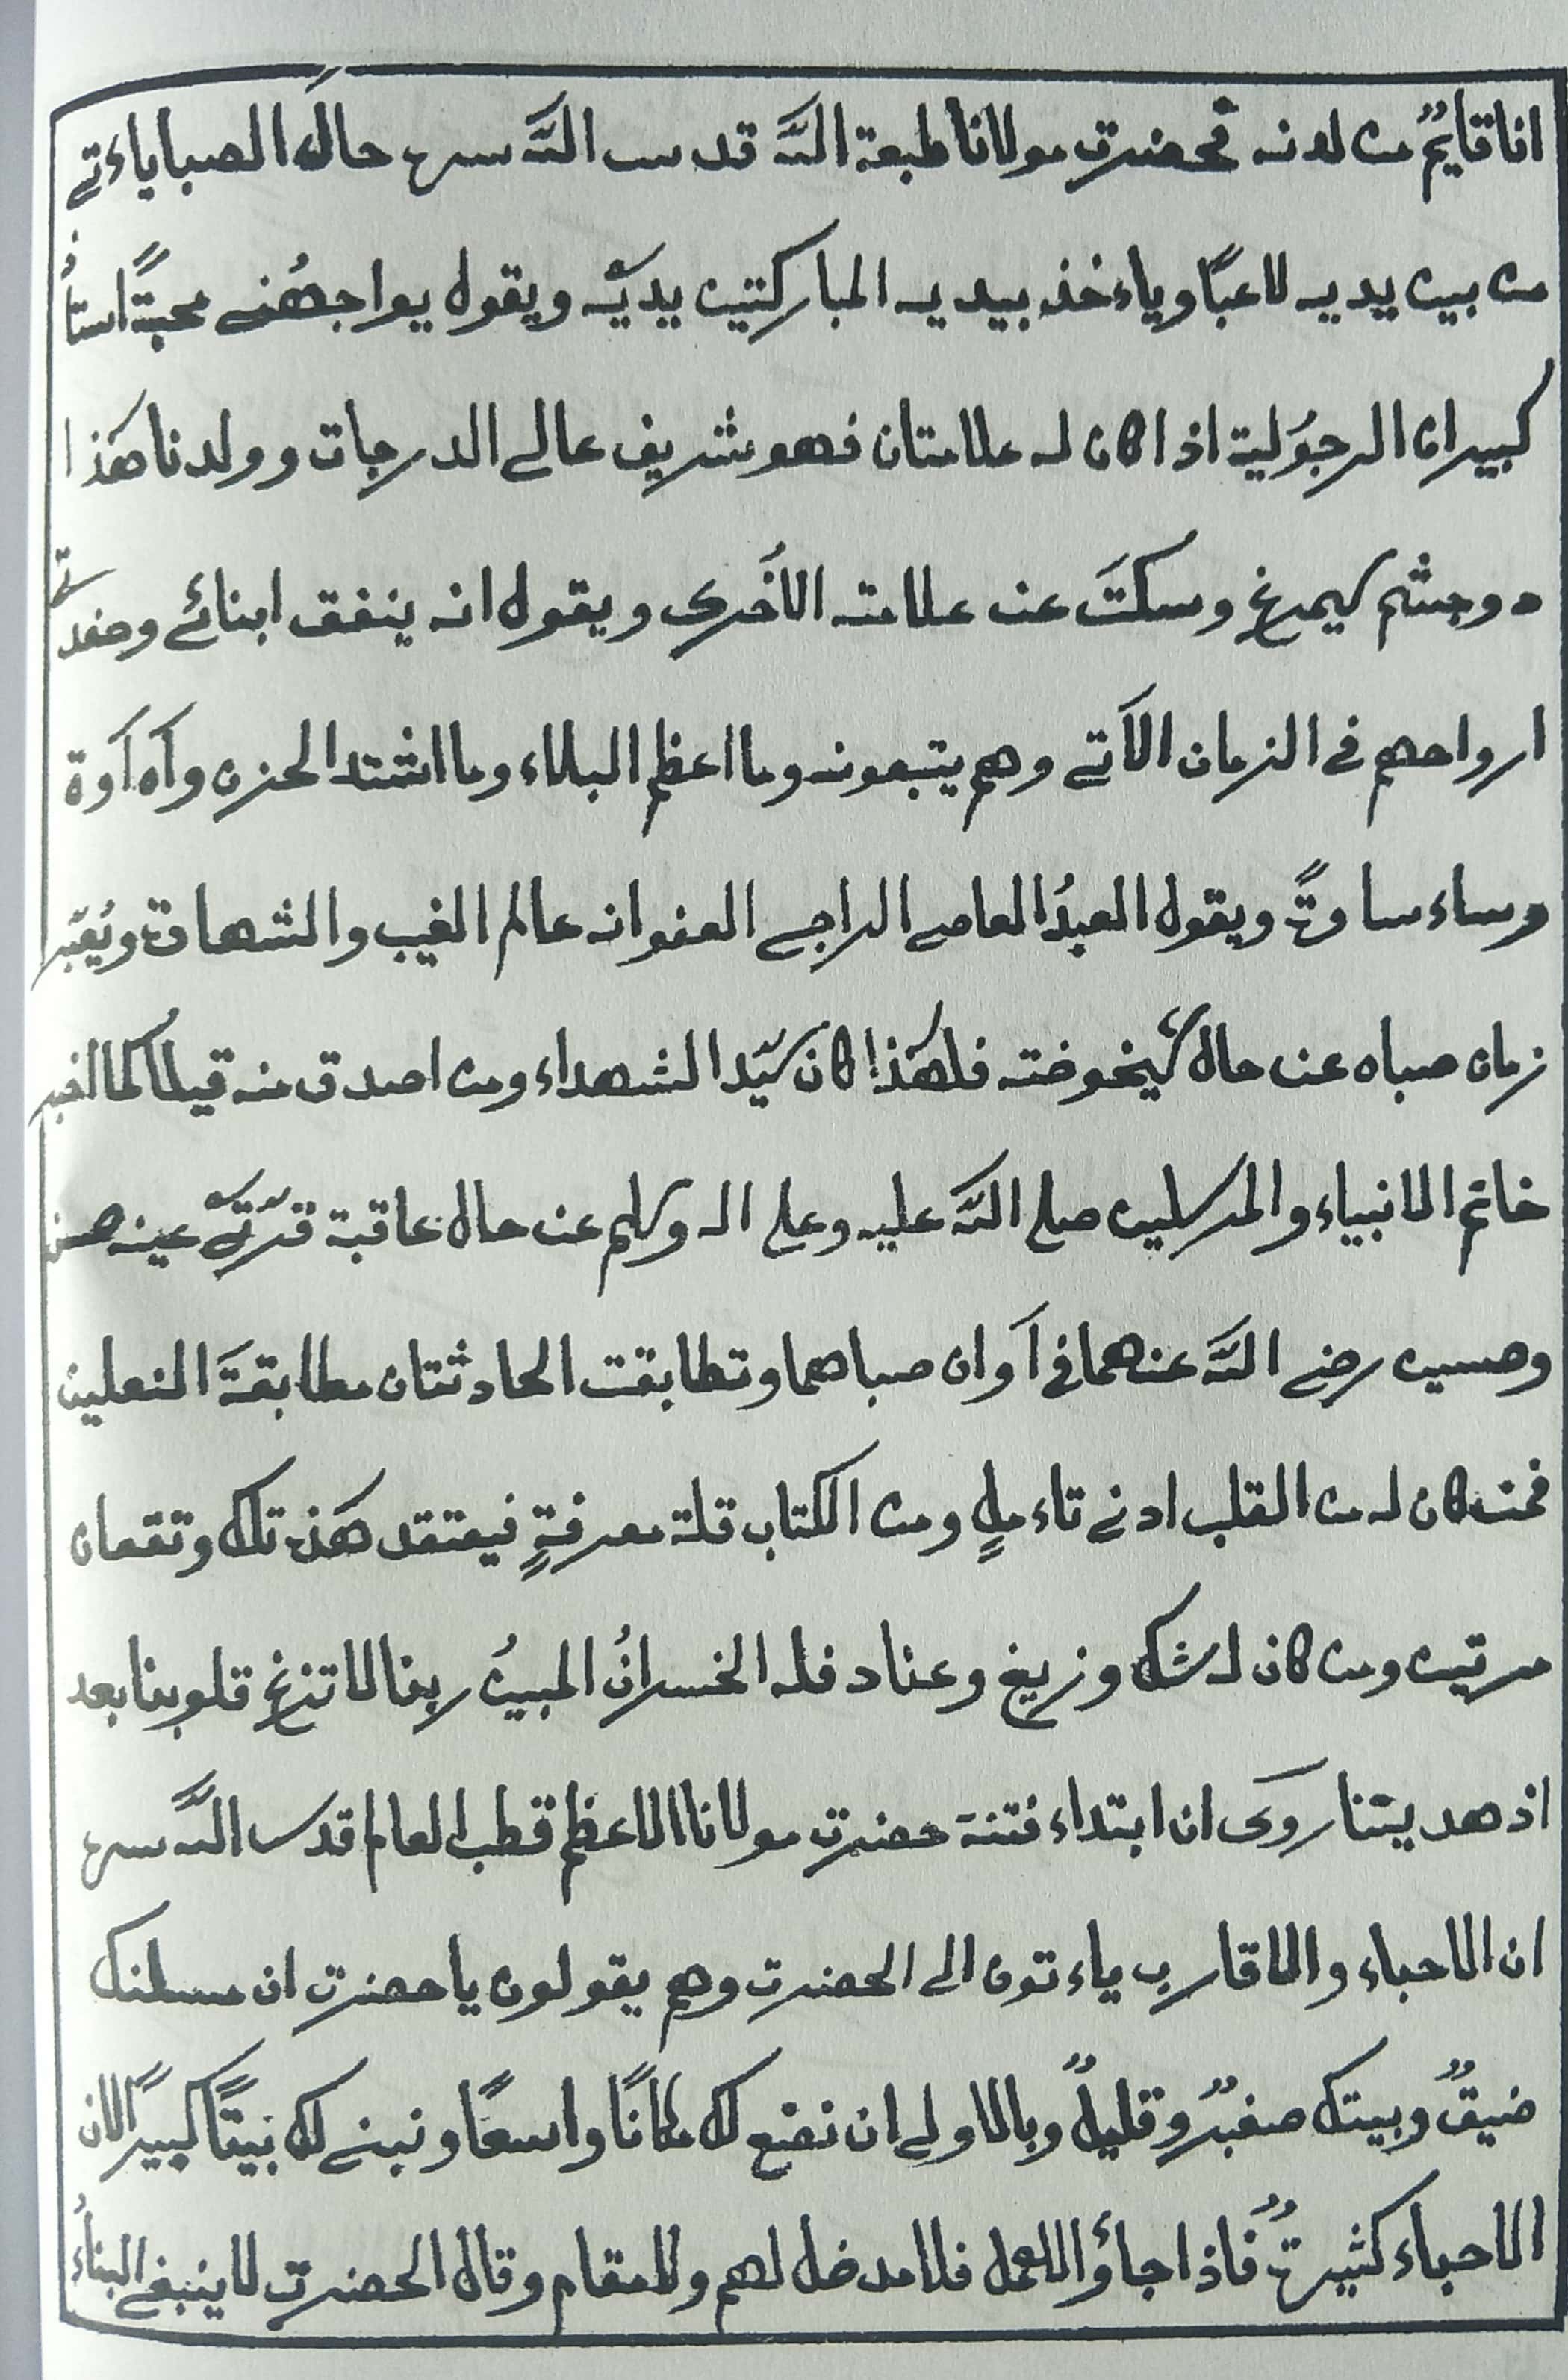 انا قايمٌ من لدنه فحضرت مولانا طبعة اللّه قدس اللّه سره حالَ الصبا ياءتے
من بين يديه لاعبًا وياءخذ بيديه المباركتين يديّه ويقول يواجهُنے محبةً استاُ
كبير ان الرجوُلية اذا كان له علامتان فهو شريف عالے الدرجات وولدنا هٰذا
دو چشم سيمرغ وسكتَ عن علامته الاُخرى ويقول انه ينفق ابنائے وضدتے
ارواحهم فے الزمان الآتے وهم يتبعونه وما اعظم البلاء وما اشتد الحزن وآه آوة
وساء ساوةً ويقول العبدُ العاصے الراجے العفو انه عالم الغيب والشهادة ويُعَبّر
زمان صباه عن حال شيخوخته فلهٰذا كان سيّد الشهداء ومن اصدق منه قيلا كما اخبر
خاتم الانبياء والمرسلين صلے اللّه عليه وعلے اله وسلم عن حال عاقبة قرّتَے عينه حسن
وحسين رضے اللّه عنهما فے آوان صباهما وتطابقت الحادثتان مطابقةَ النعلين
فمن كان له من القلب ادنے تاءملٍ ومن الكتاب قلة معرفةٍ فيعتقد هٰذه تلك وتقعان
مرتين ومن كان له شك وزيغ وعناد فله الخسرانُ المبينُ ربنا لا تزغ قلوبنا بعد
اذ هديتنا روى ان ابتداء فتنة حضرت مولانا الاعظم قطب العالم قدس اللّه سره
ان الاحباء والاقارب ياءتون الى الحضرت وهم يقولون يا حضرت ان مسكنك
ضيقٌ وبيتك صغيرٌ وقليلٌ وبالاولے ان نضع لك مكانًا واسعًا ونبنے لك بيتًا كبيرًا لان
الاحباء كثيرةٌ فاذا جاؤا لاعمل فلا مدخل لهم ولا مقام وقال الحضرت لا ينبغے البناءُ